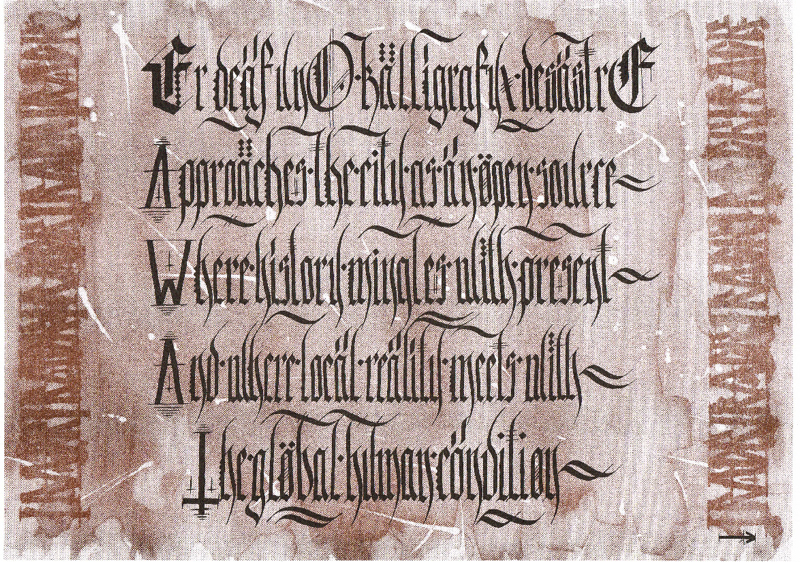 desästrE
Approäches·the·city·as·än·öpen·source~
Where·history·mingles·with·present~
And·where·locäl·reälity·meets·with~
The·glöbal·human·cöndition~